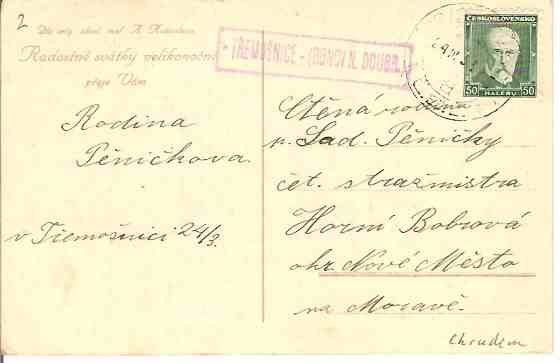 2
Radostné svátky velikonoční
přeje Vám
Rodina
Pěničkova
v Třemošnici 24/3.
TŘEMOŠNICE - (RONOV N. DOUBR.)
ČESKOSLOVENSKO
50 50
HALÉŘŮ
Ctěná rodina
p. Lad. Pěničky
čet. stražmistra
Horní Bobrová
okr. Nové Město
na Moravě.
Chrudim